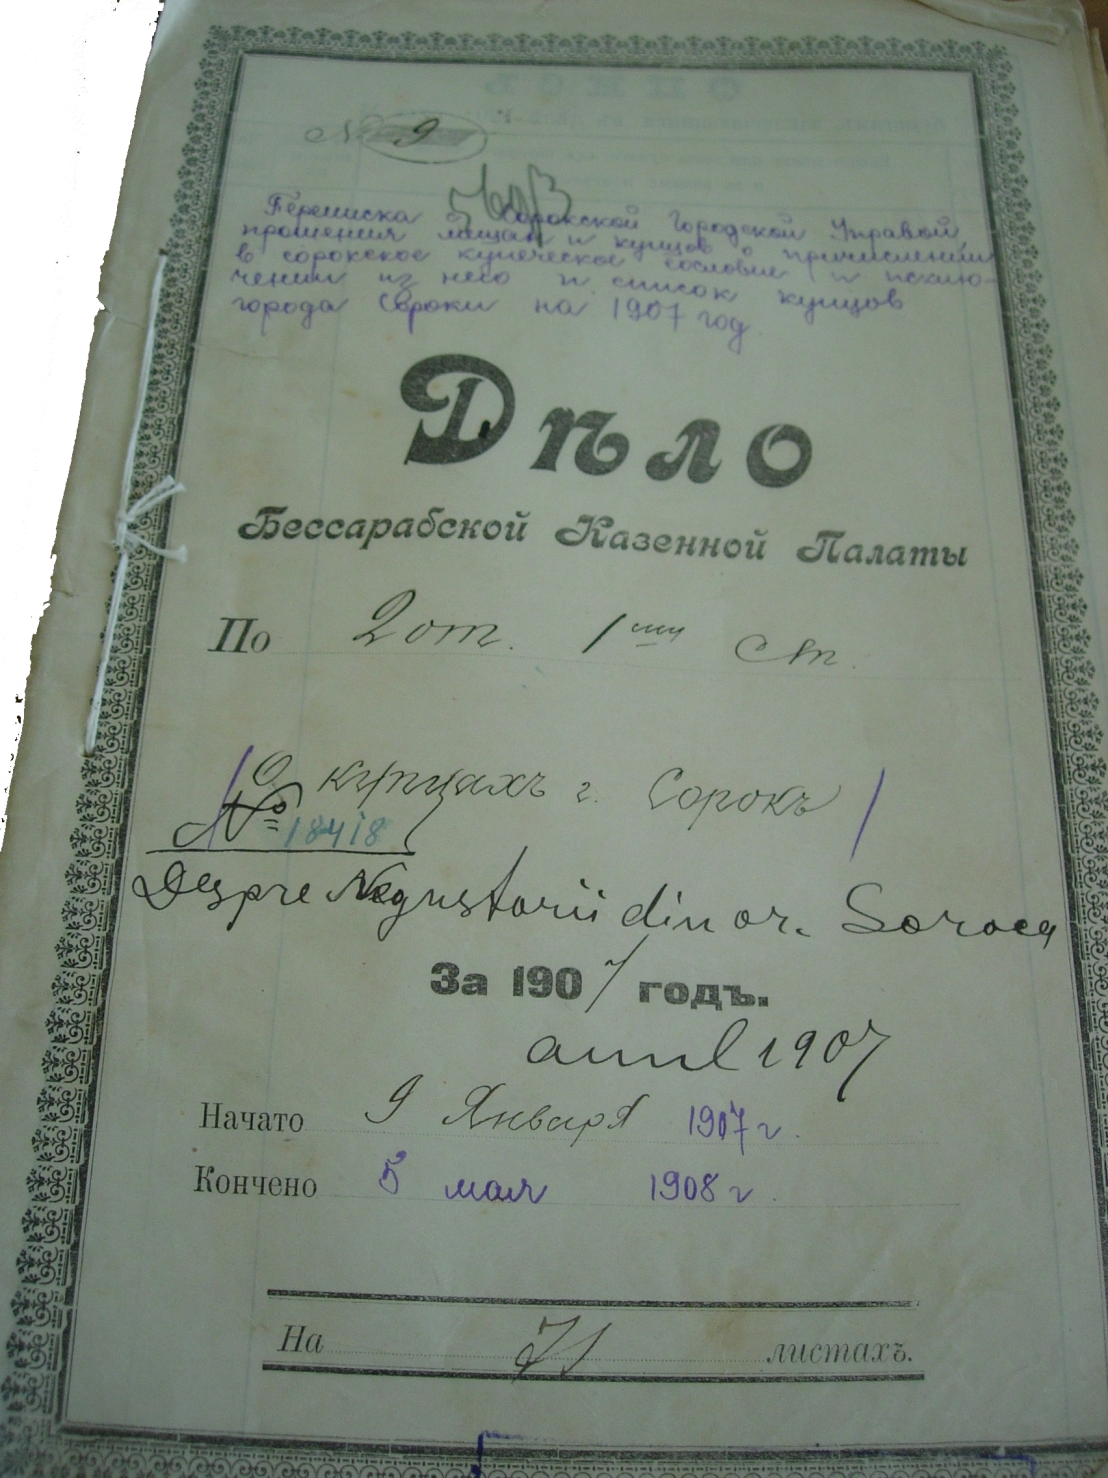 № 9
Переписка с Сорокской Городской Управой,
прошения мещан и купцов о причислении
в сорокское купеческое сословие и исклю-
чении из него и список купцов
города Сороки на 1907 год.
Дѣло
Бессарабской Казенной Палаты
По 2 от. 1ый ст.
О купцахъ г. Сорокъ
№ 18418
Despre Negustorii din or. Soroca
За 1907 годъ.
anul 1907
Начато 9 Января 1907 г.
Кончено 5 мая 1908 г.
На 71 листахъ.